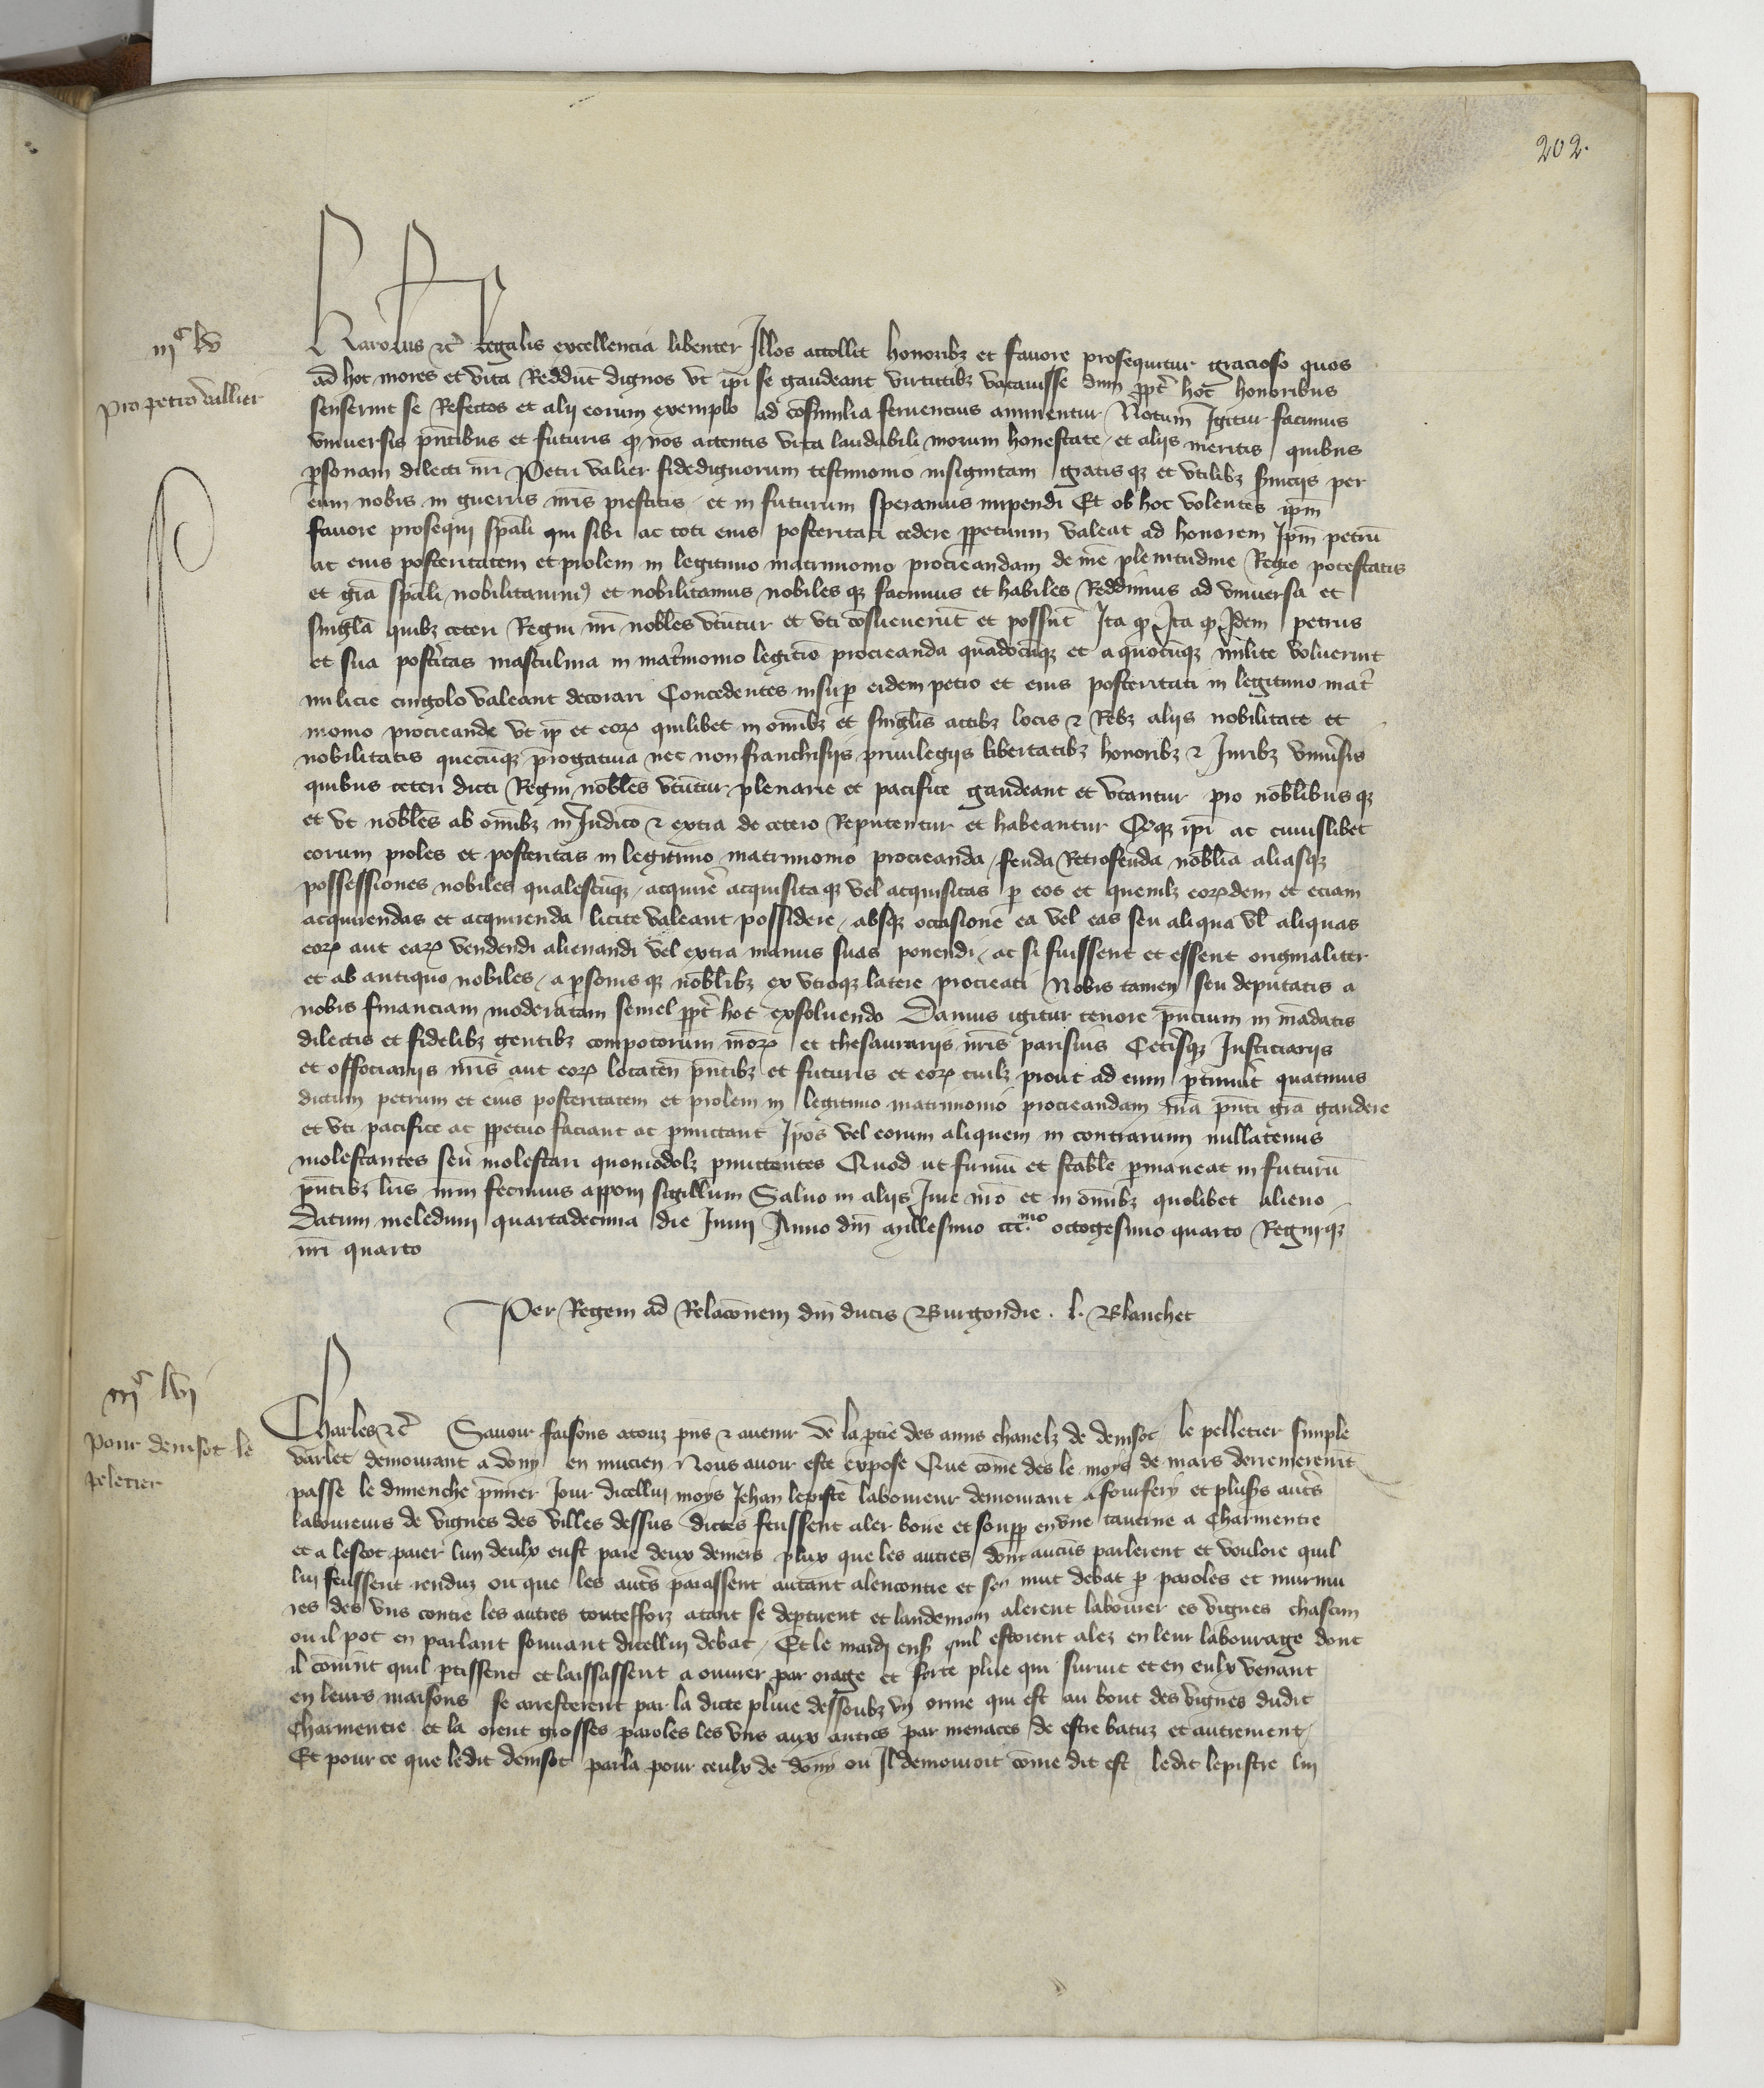 202.
iijᶜ lv
pro petro vallier
Karolus &c̃ Regalis excellencia libenter Illos attollit honoribꝫ et fauore prosequitur gracioso quos
ad hoc mores et vita Reddũt dignos vt ip̃i se gaudeant virtutibꝫ vacauisse dum ꝓpt̃ hoc honoribus
senserint se Refectos et alij eorum exemplo ad cõsimilia feruencius animentur Notum Igitur facimus
vniuersis p̃ntibus et futuris ꝙ nos attentis vita laudabili morum honestate et aliis meritis quibus
ꝑsonam dilecti nr̃i Petri valier fidedignorum testimonio insignitam gratis qꝫ et vtilibꝫ s̃uiciis per
eum nobis in guerris nr̃is prestitis et in futurum speramus impendi Et ob hoc volentes ip̃m
fauore prosequi sp̃ali qui sibi ac toti eius posteritati cedere ꝑpetuum valeat ad honorem Ip̃m petrũ
ac eius posteritatem et prolem in legitimo matrimonio procreandam de nr̃e plenitudine Regie potestatis
et gr̃a sp̃ali nobilitauimꝰ et nobilitamus nobiles qꝫ facimus et habiles Reddimus ad vniuersa et
singl̃a quibꝫ ceteri Regni nr̃i nobl̃es vtũtur et vti cõsueuerũt et possũt Ita ꝙ Ita ꝙ Idem petrus
et sua post̃itas masculina in mat̃monio legitĩo procreanda quãdocũqꝫ et a quocũqꝫ milite voluerint
milicie cingolo valeant decorari Concedentes insuꝑ eidem petro et eius posteritati in legitimo mat̃
monio procreande vt ip̃i et eoꝝ quilibet in om̃ibꝫ et singl̃is actibꝫ locis & Rebꝫ aliis nobilitate et
nobilitatis quecũqꝫ p̃rogatiua nec non franchisiis priuilegiis libertatibꝫ honoribꝫ & Iuribꝫ vniũsis
quibus ceteri dicti Regni nobl̃es vtũtur plenarie et pacifice gaudeant et vtantur pro nobl̃ibus qꝫ
et vt nobl̃es ab om̃ibꝫ in Iudicio & extra de cetero Reputentur et habeantur Ceqꝫ ip̃i ac cuiuslibet
eorum proles et posteritas in legitimo matrimonio procreanda feuda Retrofeuda nobl̃ia aliasqꝫ
possessiones nobiles qualescũqꝫ acquirẽ acquisita qꝫ vel acquisitas ꝑ eos et quemlꝫ eoꝝdem et eciam
acquirendas et acquirenda licite valeant possidere absqꝫ occasione ea vel eas seu aliqua vl̃ aliquas
eoꝝ aut eaꝝ vendendi alienandi vel extra manus suas ponendi ac si fuissent et essent originaliter
et ab antiquo nobiles a ꝑsonis qꝫ nobl̃ibꝫ ex vtroqꝫ latere procreati Nobis tamen seu deputatis a
nobis financiam moderatam semel ꝓpt̃ hoc exsoluendo Damus igitur tenore p̃ncium in mãdatis
dilectis et fidelibꝫ gentibꝫ compotorum nr̃oꝝ et thesaurariis nr̃is parisius Cet̃isqꝫ Iusticiariis
et officiariis nr̃is aut eoꝝ locateñ p̃ntibꝫ et futuris et eoꝝ cuilꝫ prout ad eum ꝑtinũit quatinus
dictum petrum et eius posteritatem et prolem in legitimo matrimonio procreandam nr̃a p̃nti gr̃a gaudere
et vti pacifice ac ꝑpetuo faciant ac ꝑmittant Ip̃os vel eorum aliquem in contrarium nullatenus
molestantes seu molestari quomodolꝫ ꝑmittentes Quod ut firmũ et stabile ꝑmaneat in futurũ
p̃ntibꝫ lr̃is nr̃m fecimus apponi sigillum Saluo in aliis Iure nr̃o et in om̃ibꝫ quolibet alieno
Datum meleduni quartadecima die Iunij Anno dñi millesimo ccc.ᵐᵒ octogesimo quarto Regniqꝫ
nr̃i quarto
Per Regem ad Relacõnem dñi ducis Burgondie . l. Blanchet
iijᶜ lvj
pour denisot le
peletier
Charles &c̃ Sauoir faisons a touz p̃ns & auenir De la ꝑtie des amis charnelz de denisot le pelletier simple
varlet demourant a dony en mucien Nous auoir este expose Que cõme des le moys de mars derrenierem̃t
passe le dimenche p̃mier Jour dicellui moys Jehan lepistre laboureur demourant a fourfery et plus̃s aut̃s
laboureurs de vignes des villes dessus dictes feussent aler boire et soupꝑ en vne tauerne a Charmentre
et a lescot paier lun deulx eust paie deux deniers plux que les autres dont aucũs parlerent et voulore quil
lui feussent renduz ou que les aut̃s paiassent autant alencontre et sen mut debat ꝑ paroles et murmu
res des vns contre les autres toutefforz atant se deꝑtirent et landemain alerent labourer es vignes chascun
ou il pot en parlant souuant dicellui debat Et le mardj ens̃ quil estoient alez en leur labourage dont
il cõuint quil ꝑtissent et laissassent a ouurer par orage et forte pluie qui suruit et en eulx venant
en leurs maisons se arresterent par la dicte pluie dessoubz vn orme qui est au bout des vignes dudit
Charmentre et la orent grosses paroles les vns aux autres par menaces de estre batuz et autrement
Et pour ce que ledit denisot parla pour ceulx de dony ou Il demouroit cõme dit est ledit lepistre lui